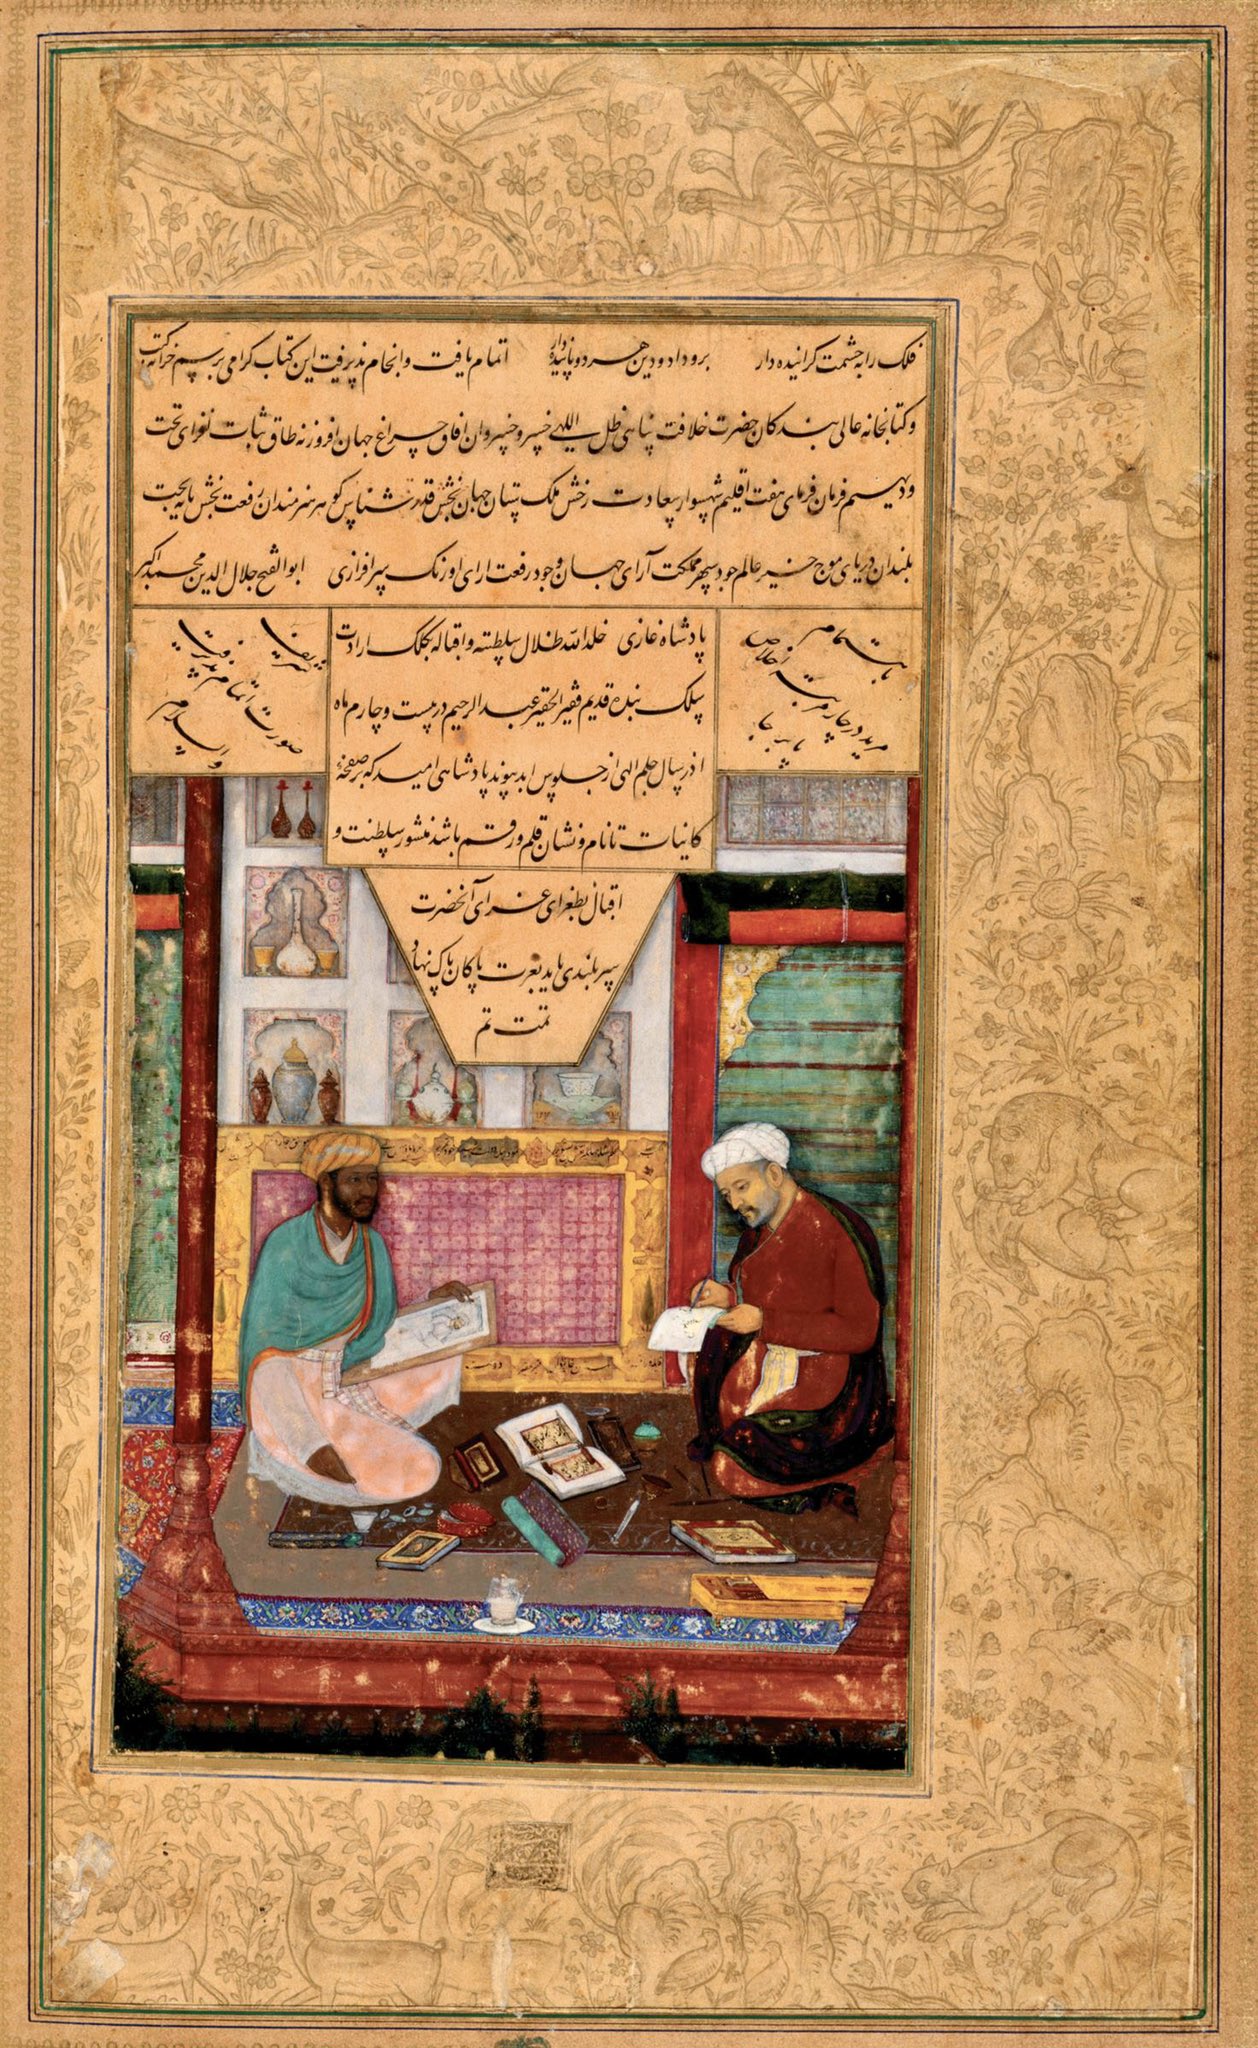 فلک را به حشمت گراینده دار برو داد و دین هر دو پاینده دار اتمام یافت و انجام پذیرفت این کتاب گرامی برسم خزانه
و کتابخانه عالی بندگان حضرت خلافت پناهی ظل اللهی خسرو خسروان افاق چراغ جهان افروز نه طاق ثبات تخت
و دیهیم فرمان فرمای هفت اقلیم شهسوار سعادت رخش ملک ستان جهان بخش قدر شناس هنرمندان رفعت بخش
بلندان دریای موج خیز عالم جود سپهر مملکت آرای جهان وجود رفعت ارای اورنک سرافرازی ابوالفتح جلال الدین محمد اکبر
پادشاه غازی خلد الله ظلال سلطنته و اقباله بکلک ارادت
سلک بنده قدیم فقیر الحقیر عبد الرحیم در بیست و چارم ماه
اذر سال چلم الهی از جلوس ابد پیوند پادشاهی امید که بر صفحهٔ
کاینات تا نام و نشان قلم و رقم باشد منشور سلطنت و
اقبال بطغرای غرای آنحضرت
سربلندی یابد بعزت پاکان پاک نهاد
تمت تم
باهتمام
مرید در چار مرتبه
صورت اتمام پذیرفت
والسلام